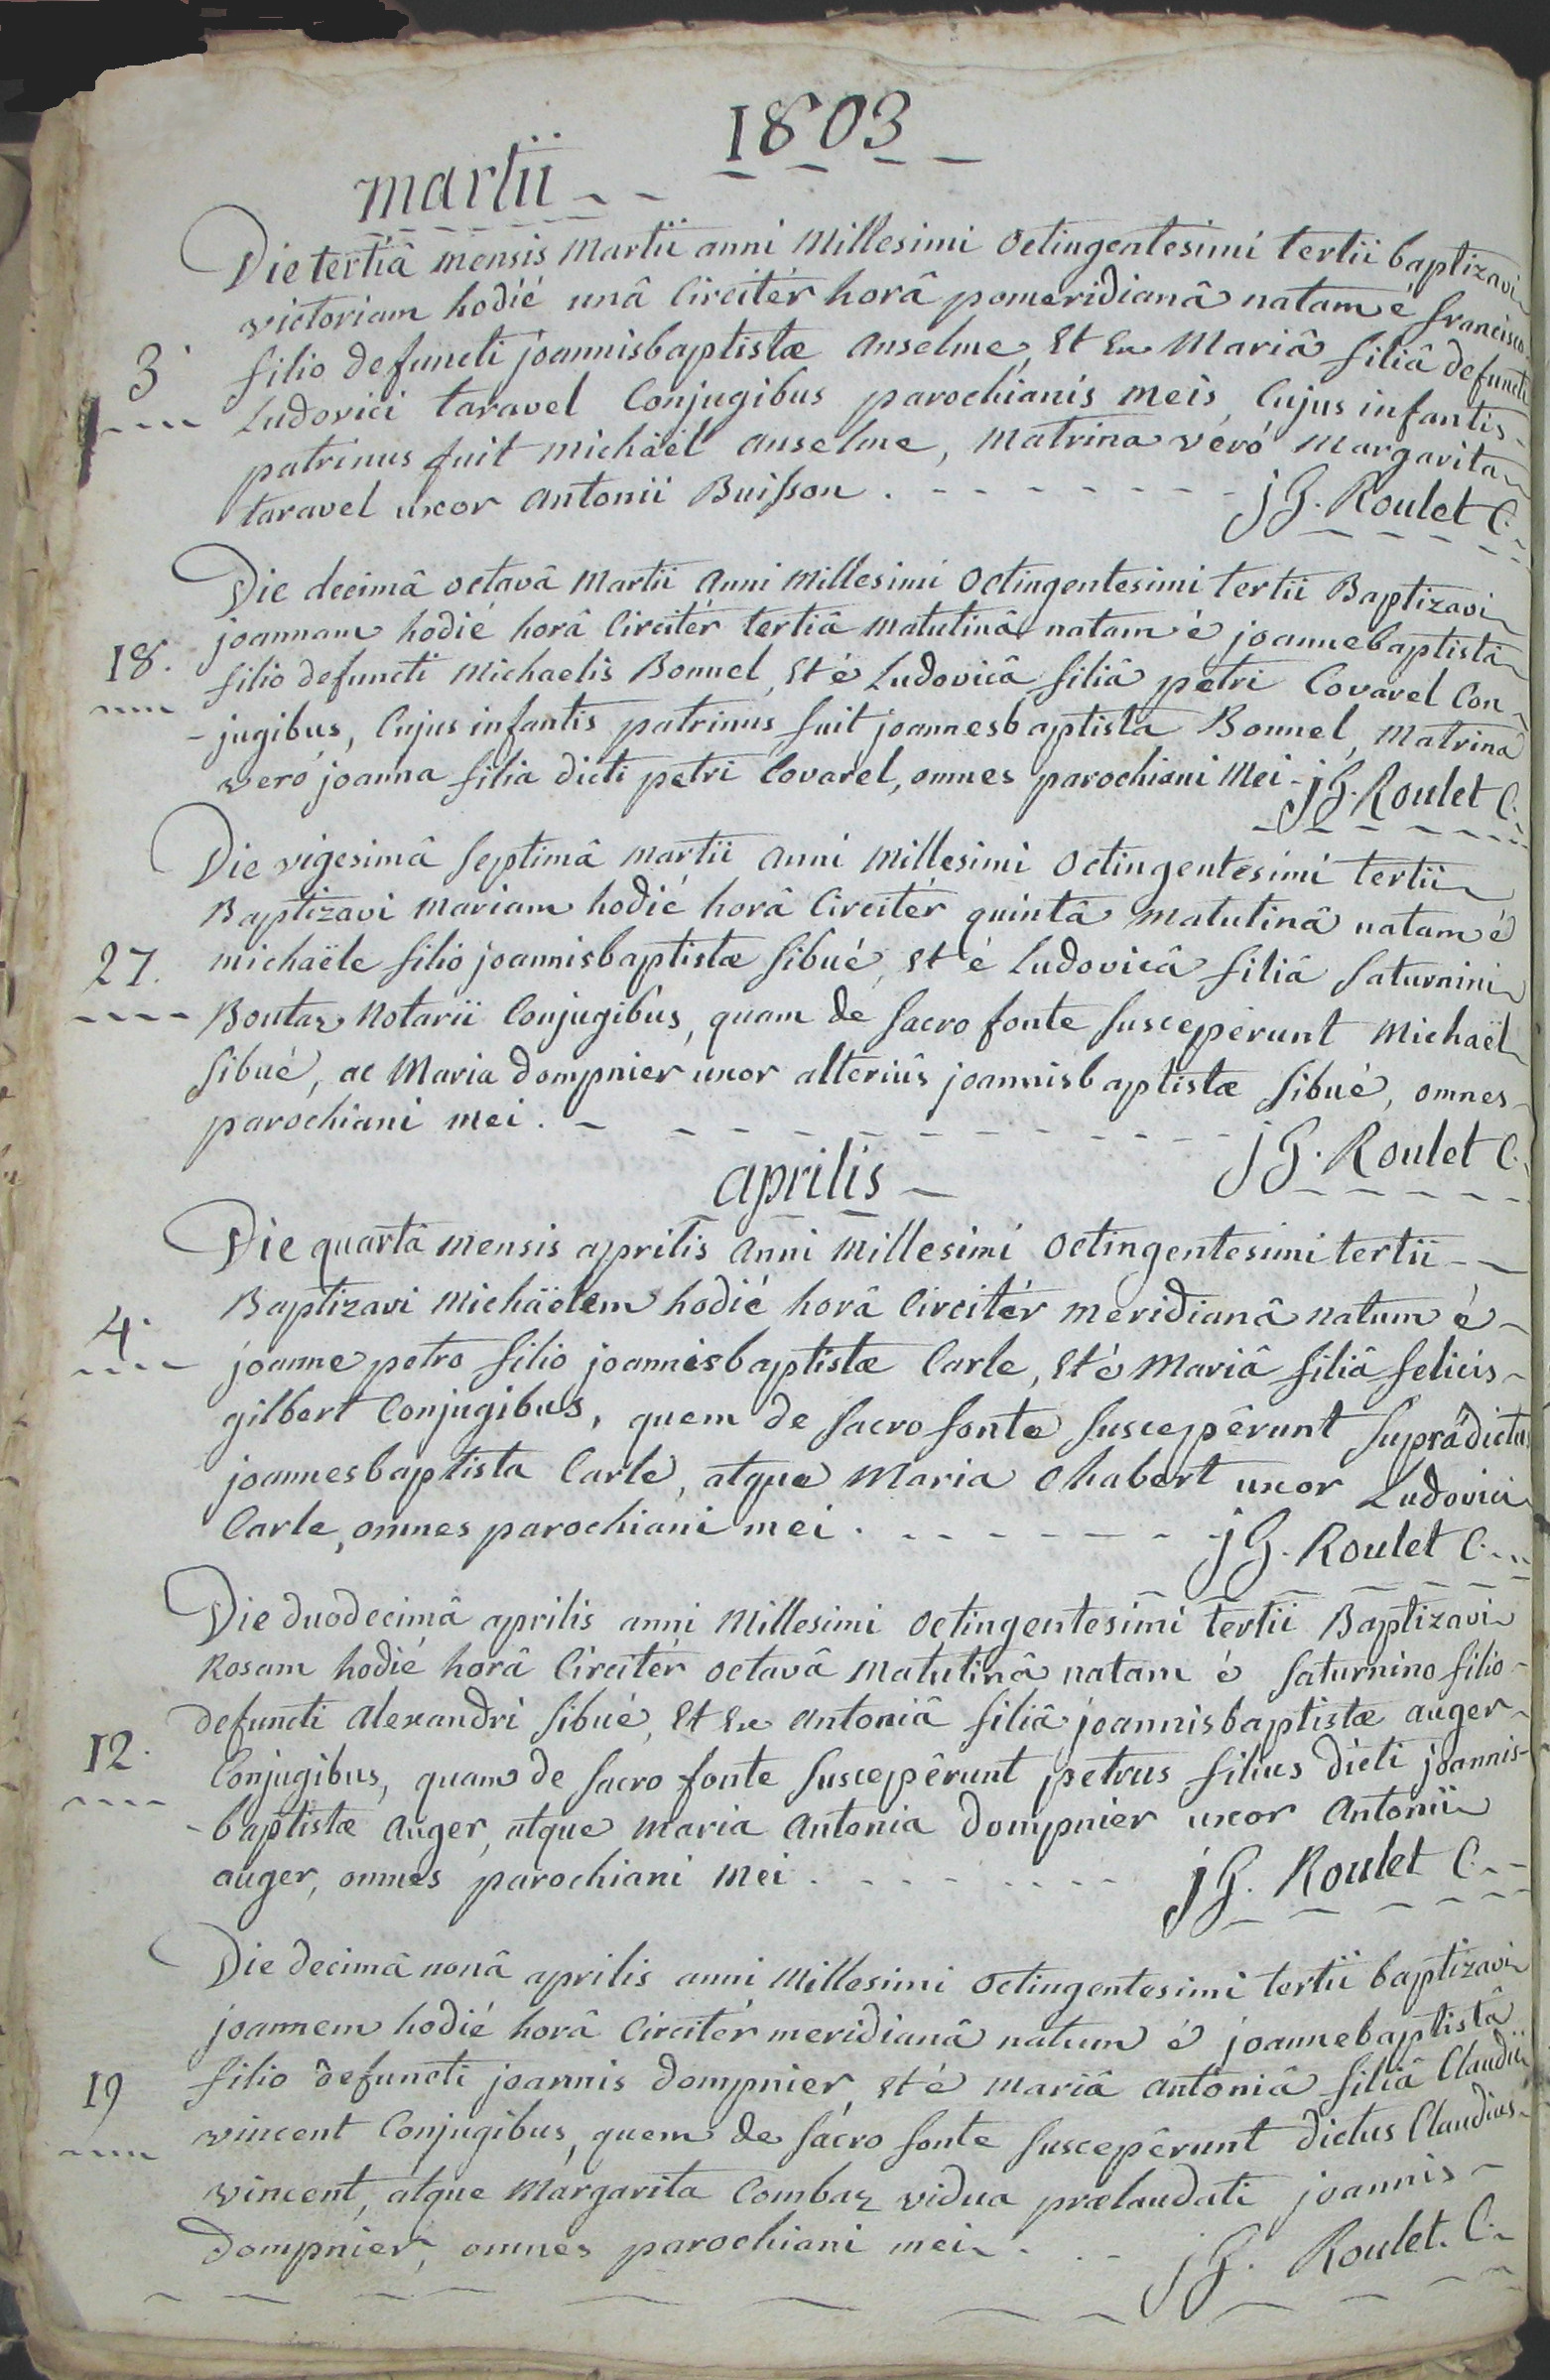 1803
martii
Die tertiâ mensis Martii anni Millesimi octingentesimi tertii baptizavi
victoriam hodié unâ Circitér horâ pomeridianâ natam é francisco
3. filio defuncti joannisbaptistæ anselme, Et Ex Mariâ filiâ defuncti
Ludovici taravel Conjugibus parochianis meis, Cujus infantis
patrinus fuit michäel anselme, Matrina veró Margarita
taravel uxor antonii Buisson. jG. Roulet C.
Die decimâ octavâ Martii anni Millesimi octingentesimi tertii Baptizavi
joannam hodié horâ Circitér tertiâ Matutinâ natam é joannebaptistâ
18. filio defuncti Michaelis Bonnel, Et é Ludovicâ filiâ petri Covarel Con-
-jugibus, Cujus infantis patrinus fuit joannesbaptista Bonnel, Matrina
veró joanna filia dicti petri Covarel, omnes parochiani Mei - jG. Roulet C.
Die vigesimâ Septimâ martii anni Millesimi octingentesimi tertii
Baptizavi Mariam hodié horâ Circitér quintâ matutinâ natam é
27. michaële filio joannisbaptistæ Sibué, Et é Ludovicâ filiâ Saturnini
Boutaz Notarii Conjugibus, quam de Sacro fonte Suscepérunt Michaël
Sibué, ac Maria dompnier uxor alteriûs joannisbaptistæ Sibué, omnes
parochiani mei. jG. Roulet C.
aprilis
Die quartâ Mensis aprilis anni Millesimi octingentesimi tertii
Baptizavi Michäelem hodié horâ Circitér meridianâ natum é
4. joanne petro filio joannisbaptistæ Carle, Et é Mariâ filiâ felicis
gilbert Conjugibus, quem de Sacro fonte Suscepêrunt Suprádictus
joannesbaptista Carle, atque Maria Chabert uxor Ludovici
Carle, omnes parochiani mei. jG. Roulet C.
Die duodecimâ aprilis anni Millesimi octingentesimi tertii Baptizavi
Rosam hodié horâ Circitér octavâ Matutinâ natam é Saturnino filio
defuncti alexandri Sibué, Et Ex antoniâ filiâ joannisbaptistæ auger
12. Conjugibus, quam de Sacro fonte Suscepêrunt petrus filius dicti joannis-
-baptistæ auger, atque Maria antonia dompnier uxor antonii
auger, omnes parochiani Mei. jG. Roulet C.
Die decimâ nonâ aprilis anni Millesimi octingentesimi tertii baptizavi
joannem hodié horâ Circitér meridianâ natum é joannebaptistâ
19 filio defuncti joannis dompnier, et é Mariâ antoniâ filiâ Claudii
vincent Conjugibus, quem de Sacro fonte Suscepêrunt dictus Claudius
vincent, atque Margarita Combaz vidua prælaudati joannis
dompnier, omnes parochiani mei. jG. Roulet. C.